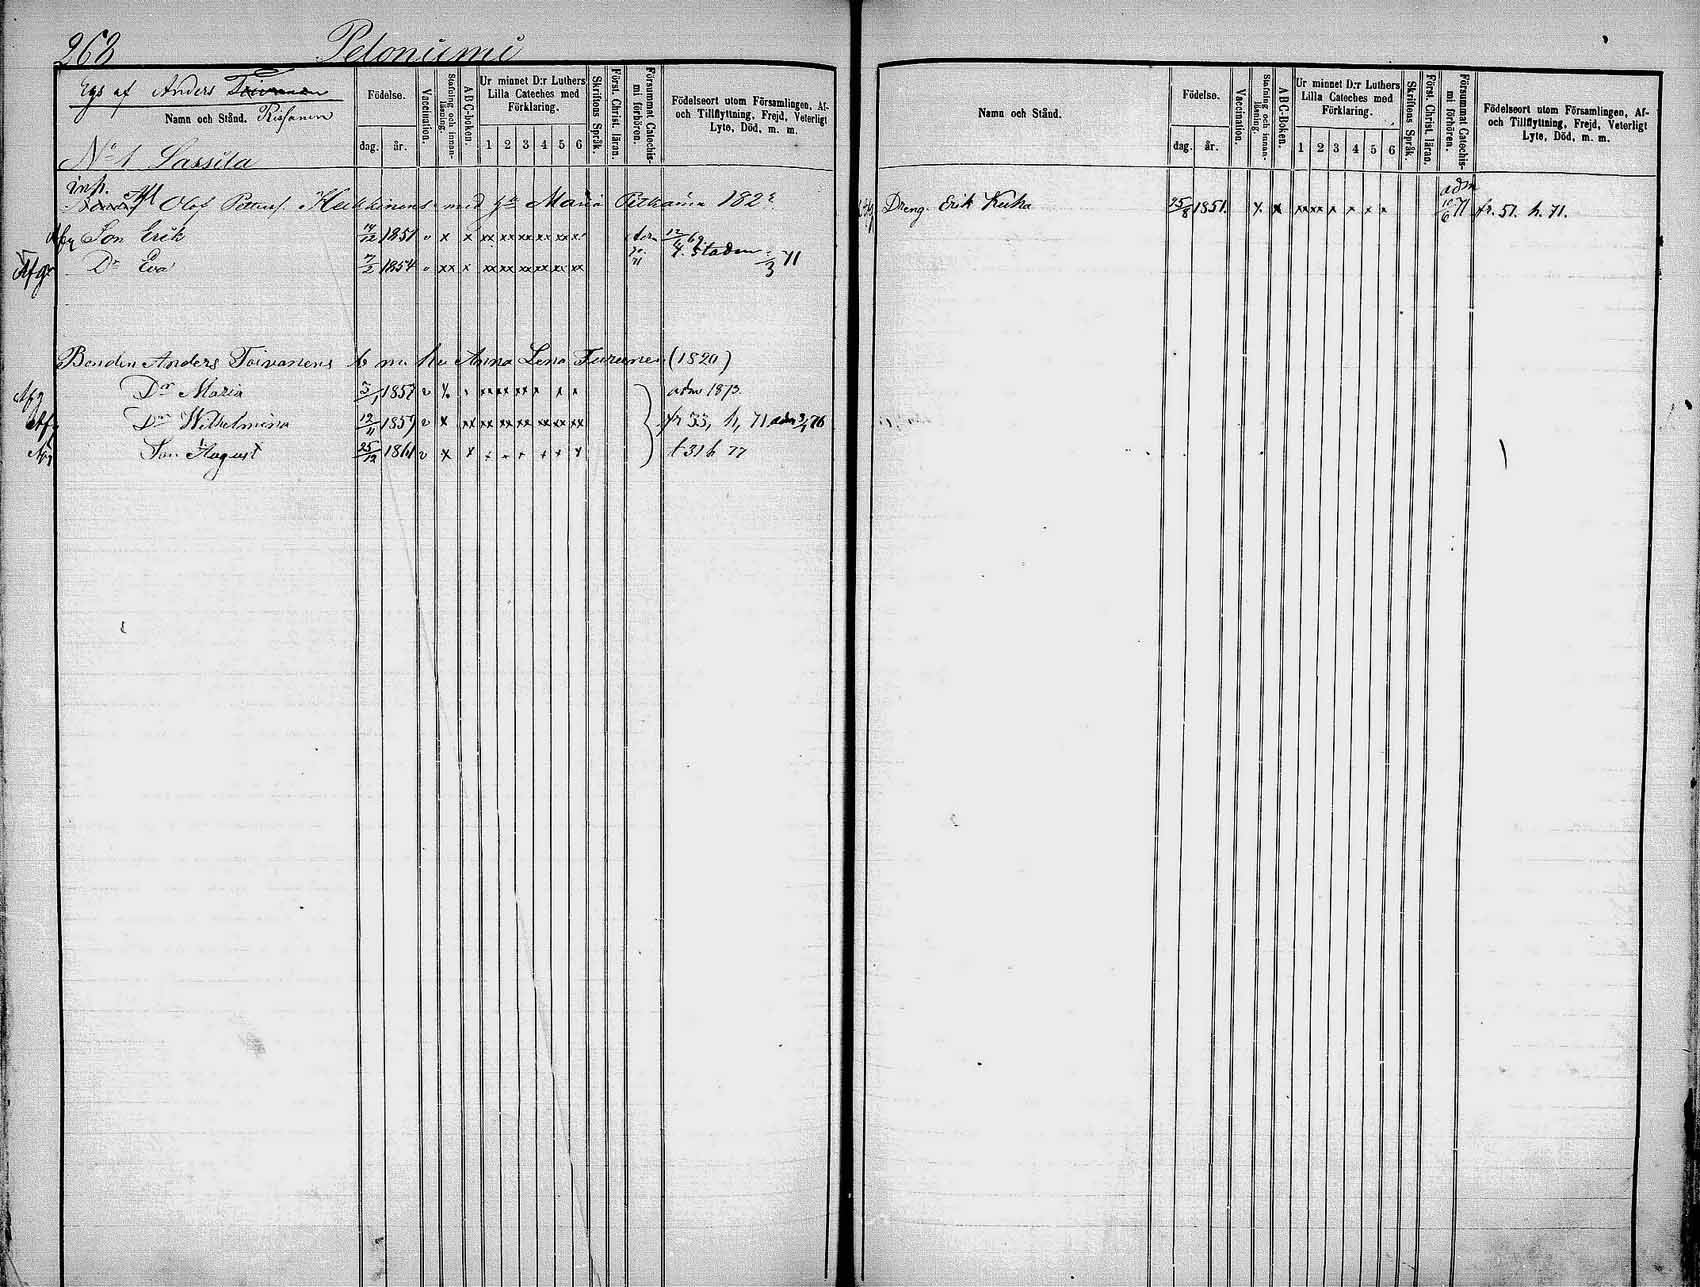 268 Peloniemi
Egs af Anders Toivanen
Namn och Stånd. Risanen
Födelse.
dag. år.
Vaccination.
Stafning och innanläsning.
ABC-boken.
Ur minnet D:r Luthers Lilla Cateches med Förklaring.
1 2 3 4 5 6
Skriftens Språk.
Först. Christ. läran.
Försummat Catechismi förhören.
Födelseort utom Församlingen, Af- och Tillflyttning, Frejd, Veterligt Lyte, Död, m. m.
No 1 Lassila
inh.
Olof Petters. Heikkinens med Maria Pitkäinen 182
Afg Son Erik 14/12 1851 v x x xx xx xx xx xx xx 12/4 69
Afg Dr Eva 7/2 1854 v xx x xx xx xx xx xx xx t. Staden /3 71
Bonden Anders Toivanens Anna Lena Turunen (1820)
Afg Dr Maria 3/1 1857 adm 1873.
Afg Dr Wilhelmina 12/11 1859 v x xx xx xx xx xx xx xx fr 33, h, 71 adm 76
Afg Son August 25/12 1861 v x x t 31 h 77
Namn och Stånd.
Födelse.
dag. år.
Vaccination.
Stafning och innanläsning.
ABC-boken.
Ur minnet D:r Luthers Lilla Cateches med Förklaring.
1 2 3 4 5 6
Skriftens Språk.
Först. Christ. läran.
Försummat Catechismi förhören.
Födelseort utom Församlingen, Af- och Tillflyttning, Frejd, Veterligt Lyte, Död, m. m.
Dreng Erik Kuha 25/8 1851. x x xx xx x x x x adm 10/6 71 fr. 51. h. 71.